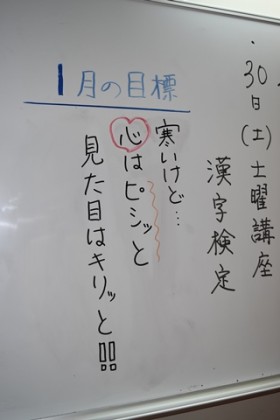 30日(土)土曜講座
漢字検定
1月の目標
寒いけど…
心はピシッと
見た目はキリッと!!